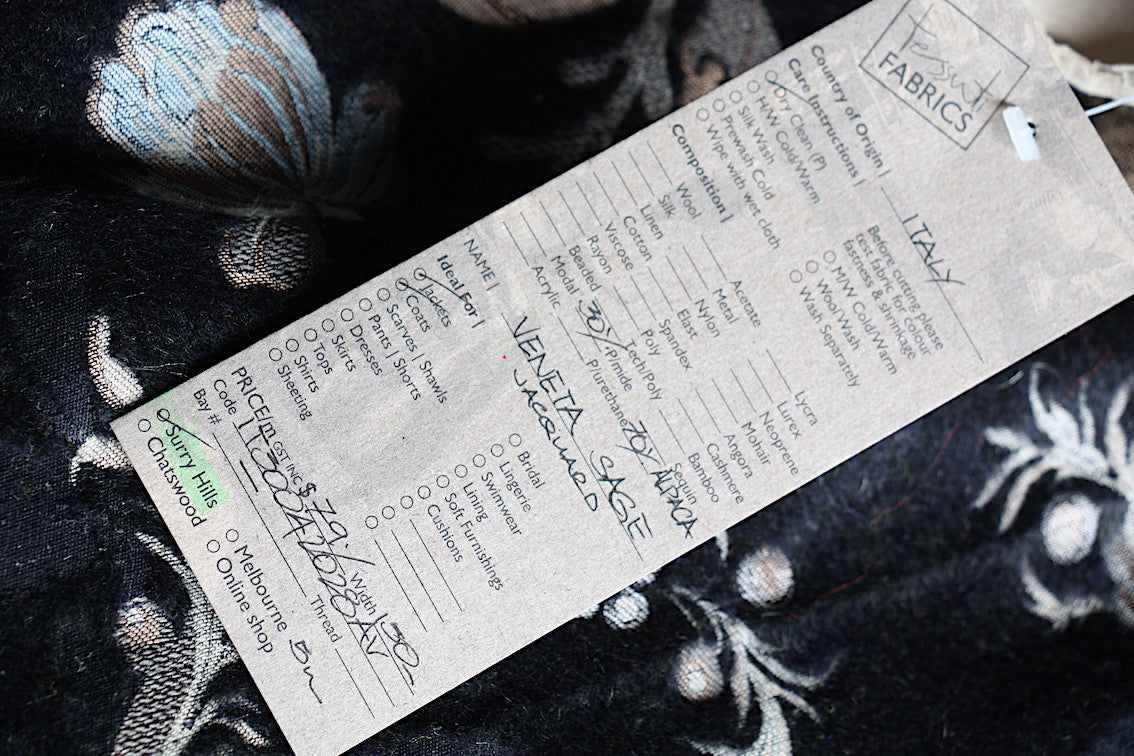 Tessuti
FABRICS
Country of Origin | ITALY
Care Instructions |
Dry Clean (P)
H/W Cold/Warm
Silk Wash
Prewash Cold
Wipe with wet cloth
Before cutting please
test fabric for colour
fastness & shrinkage
M/W Cold/Warm
Wool Wash
Wash Separately
Composition |
Wool
Silk
Linen
Cotton
Viscose
Rayon
Beaded
Modal
Acrylic
Acetate
Metal
Nylon
Elast
Spandex
Poly
Tech/Poly
30% P/mide
Plurethane
Lycra
Lurex
Neoprene
Mohair
Angora
Cashmere
Bamboo
Sequin
70% ALPACA
NAME | VENETA SAGE
JACQUARD
Ideal For |
Jackets
Coats
Scarves | Shawls
Pants | Shorts
Dresses
Skirts
Tops
Shirts
Sheeting
Bridal
Lingerie
Swimwear
Lining
Soft Furnishings
Cushions
PRICE/m GST INC $79./ Width 150
Code
Bay # Thread
Surry Hills
Chatswood
Melbourne
Online shop